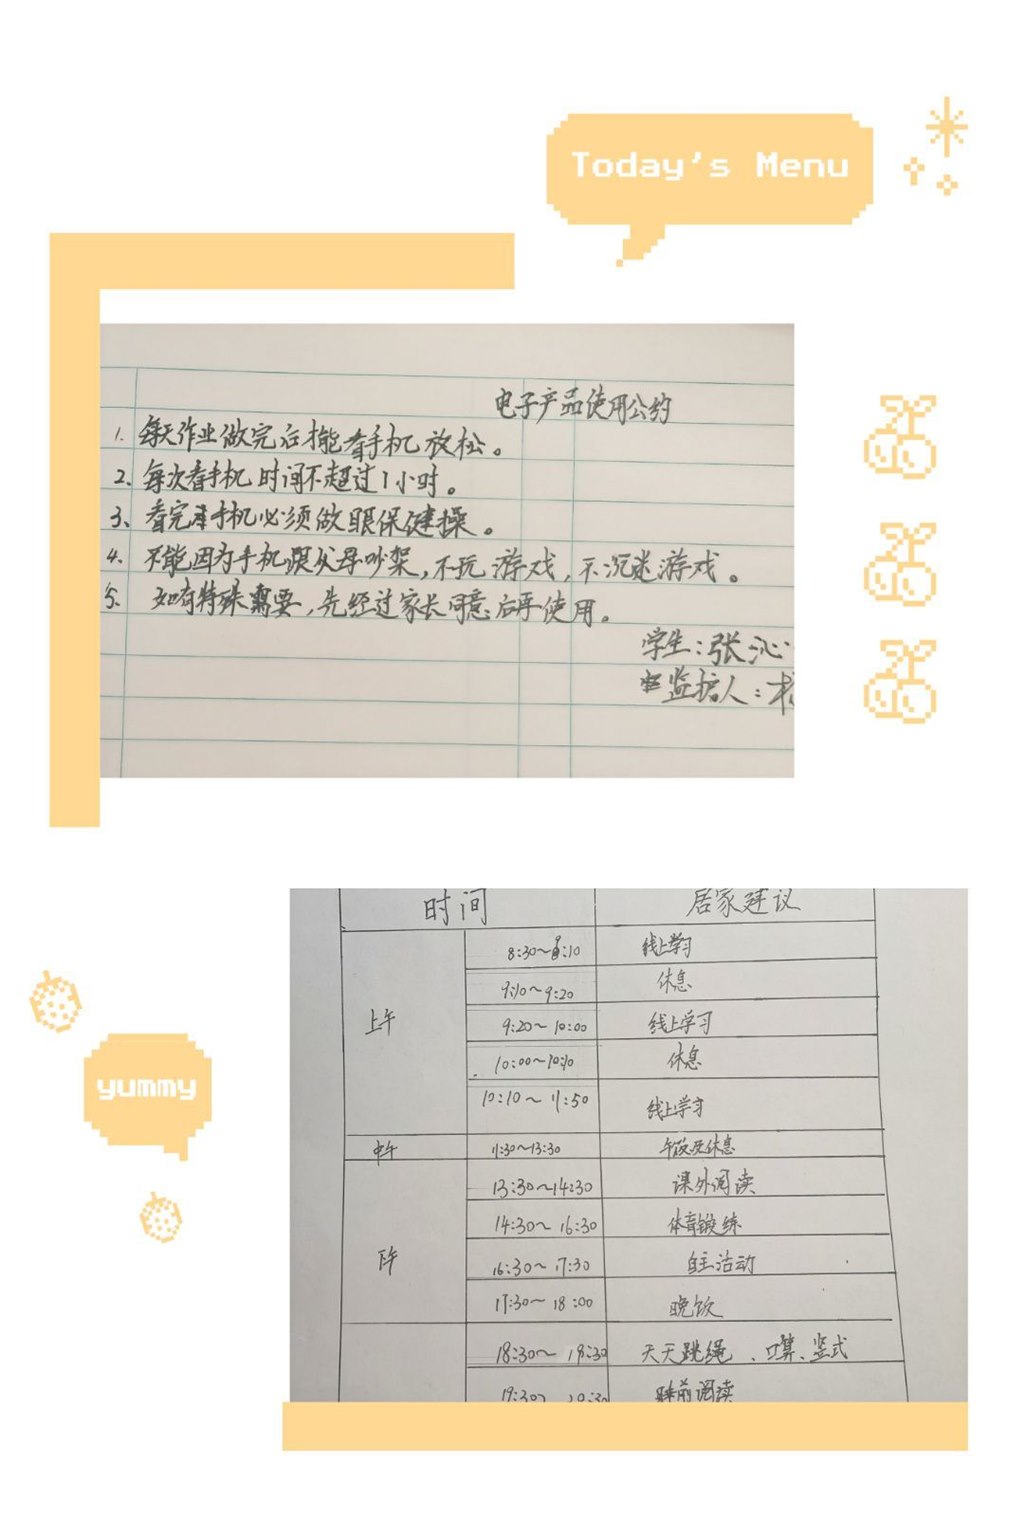 Today's Menu
电子产品使用公约
1. 每天作业做完后才能看手机放松。
2. 每次看手机时间不超过1小时。
3、看完手机必须做眼保健操。
4. 不能因为手机跟父母吵架,不玩游戏,不沉迷游戏。
5. 如有特殊需要,先经过家长同意后再使用。
学生:张沁
监护人:
时间 居家建议
上午 8:30~ :10 线上学习
9:10~9:20 休息
9:20~10:00 线上学习
10:00~10:10 休息
10:10~11:50 线上学习
中午 11:30~13:30 午饭及休息
下午 13:30~14:30 课外阅读
14:30~16:30 体育锻练
16:30~17:30 自主活动
17:30~18:00 晚饭
18:30~19:30 天天跳绳、口算、竖式
19:30~ 睡前阅读
yummy